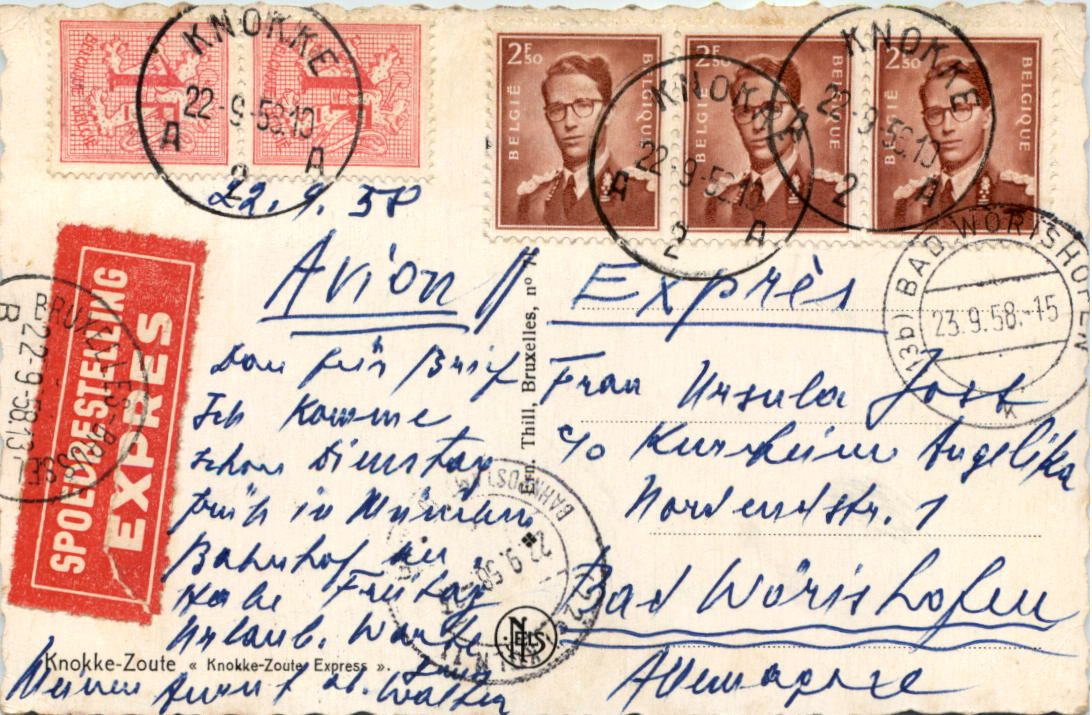 BELGIQUE BELGIË
1F
BELGIQUE BELGIË
1F
2F50
BELGIË
BELGIQUE
2F50
BELGIË
BELGIQUE
2F50
BELGIË
BELGIQUE
KNOKKE
22-9-58.10
A 2 A
KNOKKE
22-9-58.10
A 2 A
KNOKKE
22-9-58.10
2 A
22.9.58
Avion
Exprès
(13b) BAD WÖRISHOFEN
23.9.58.-15
SPOEDBESTELLING
EXPRES
BRUXELLES-BRUSSEL
22-9-58.13-
B
Ern. Thill, Bruxelles, n°
für Brief
Ich komme
schon Dienstag
früh in München
Bahnhof an.
Habe Freitag
Urlaub. Warte
Meinen ab. Walter
Frau Ursula Jost
c/o Kurheim Angelika
Nordendstr. 1
Bad Wörishofen
Allemagne
BAHNPOSTAMT
22.9.58
NELS
Knokke-Zoute « Knokke-Zoute Express ».